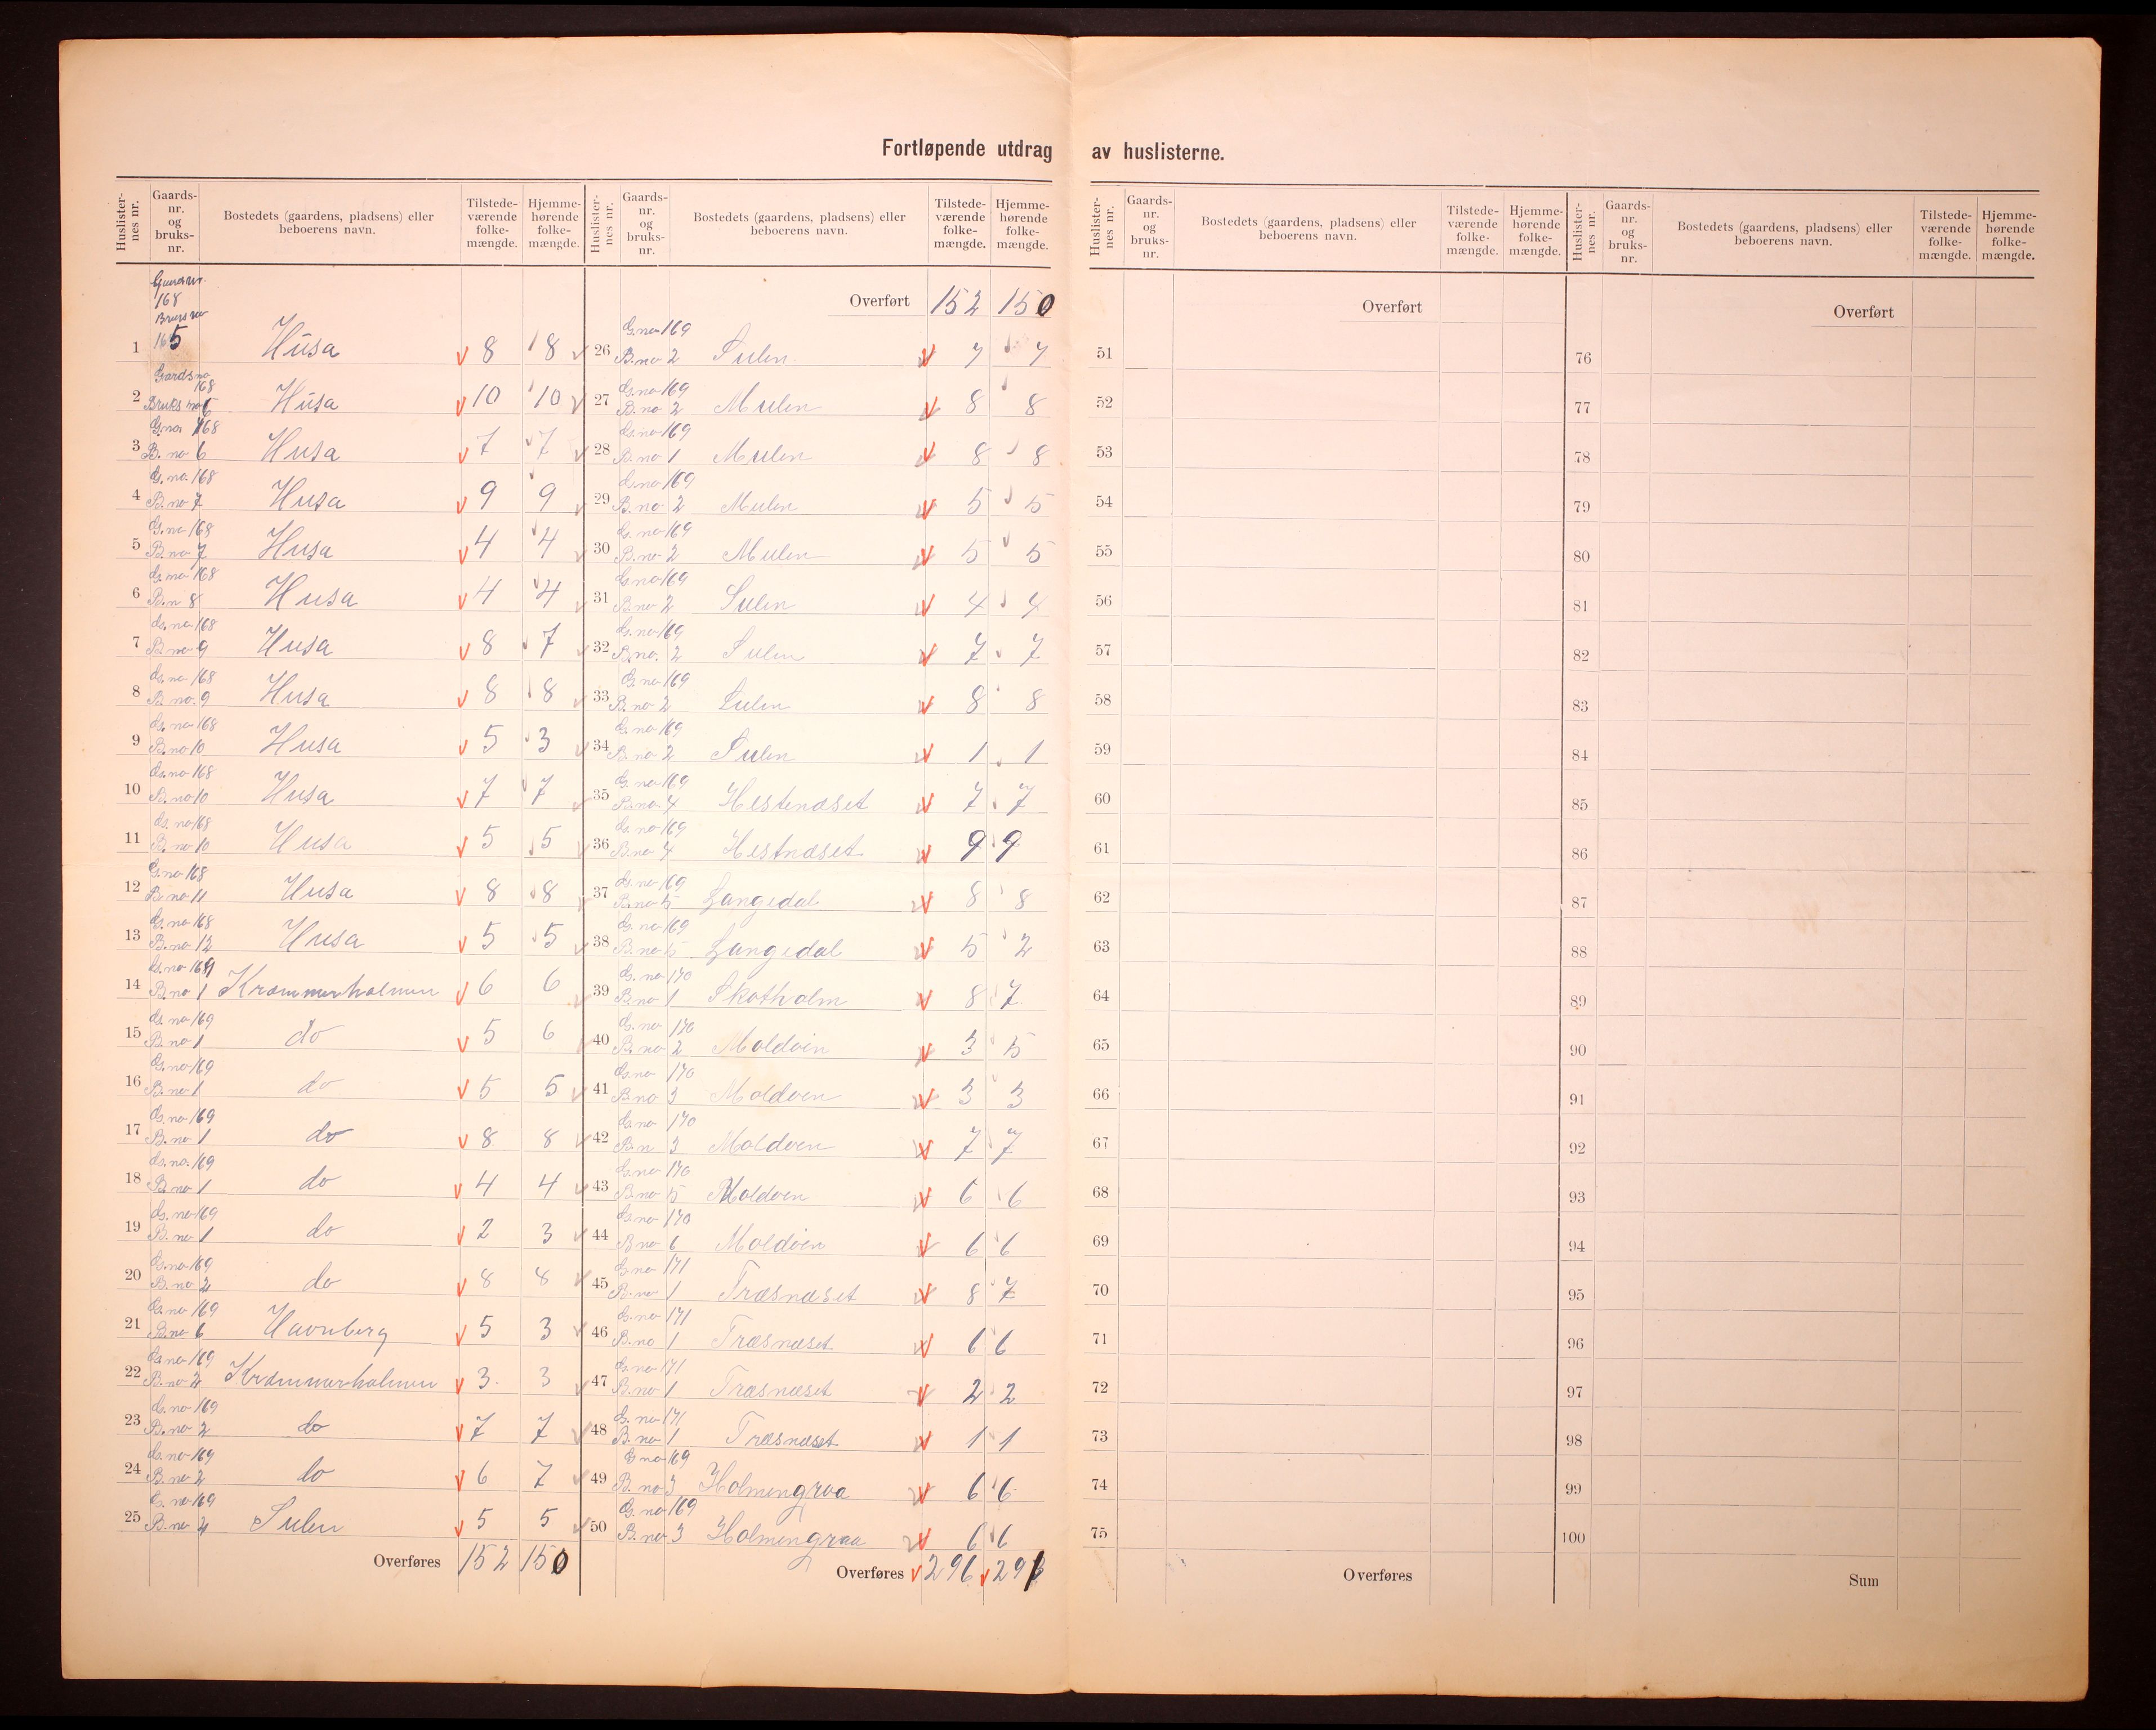 Fortløpende utdrag av huslisterne.
Huslister-nes nr. Gaards-nr. og bruks-nr. Bostedets (gaardens, pladsens) eller beboerens navn. Tilstede-værende folke-mængde. Hjemme-hørende folke-mængde.
1 Gaards nr. 168 Bruks nr 5 Husa 8 8
2 Gards no 168 Bruks no 6 Husa 10 10
3 G. no 168 B. no 6 Husa 7 7
4 G. no. 168 B. no 7 Husa 9 9
5 G. no 168 B. no 7 Husa 4 4
6 G. no 168 B. n 8 Husa 4 4
7 G. no 168 B. no 9 Husa 8 7
8 G. no 168 B. no. 9 Husa 8 8
9 G. no 168 B. no 10 Husa 5 3
10 G. no 168 B. no 10 Husa 7 7
11 G. no 168 B. no 10 Husa 5 5
12 G. no 168 B. no 11 Husa 8 8
13 G. no 168 B. no 12 Husa 5 5
14 G. no 169 B. no 1 Kræmmerholmen 6 6
15 G. no 169 B. no 1 do 5 6
16 G. no 169 B. no 1 do 5 5
17 G. no 169 B. no 1 do 8 8
18 G. no. 169 B. no 1 do 4 4
19 G. no 169 B. no 1 do 2 3
20 G. no 169 B. no 2 do 8 8
21 G. no 169 B. no 6 Havnberg 5 3
22 G. no 169 B. no 2 Kræmmerholmen 3 3
23 G. no 169 B. no 2 do 7 7
24 G. no 169 B. no 2 do 6 7
25 G. no 169 B. no 2 Sulen 5 5
Overføres 152 150
Huslister-nes nr. Gaards-nr. og bruks-nr. Bostedets (gaardens, pladsens) eller beboerens navn. Tilstede-værende folke-mængde. Hjemme-hørende folke-mængde.
Overført 152 150
26 G. no 169 B. no 2 Sulen 7 7
27 G. no 169 B. no 2 Mulen 8 8
28 G. no 169 B. no 1 Mulen 8 8
29 G. no 169 B. no 2 Mulen 5 5
30 G. no 169 B. no 2 Mulen 5 5
31 G. no 169 B. no 2 Sulen 4 4
32 G. no 169 B. no. 2 Sulen 7 7
33 G. no 169 B. no 2 Sulen 8 8
34 G. no 169 B. no 2 Sulen 1 1
35 G. no 169 B. no 4 Hestenæset 7 7
36 G. no 169 B. no 4 Hestnæset 9 9
37 G. no 169 B. no 5 Langedal 8 8
38 G. no 169 B. no 5 Langedal 5 2
39 G. no 170 B. no 1 Skotholm 8 7
40 G. no 170 B. no 2 Moldøen 3 5
41 G. no 170 B. no 3 Moldøen 3 3
42 G. no 170 B. n 3 Moldøen 7 7
43 G. no 170 B. no 5 Moldøen 6 6
44 G. no 170 B. no 6 Moldøen 6 6
45 G. no 171 B. no 1 Træsnæset 8 7
46 G. no 171 B. no 1 Træsnæset 6 6
47 G. no 171 B. no 1 Træsnæset 2 2
48 G. no 171 B. no 1 Træsnæset 1 1
49 G no 169 B. no 3 Holmengraa 6 6
50 G. no 169 B. no 3 Holmengraa 6 6
Overføres 296 291
Huslister-nes nr. Gaards-nr. og bruks-nr. Bostedets (gaardens, pladsens) eller beboerens navn. Tilstede-værende folke-mængde. Hjemme-hørende folke-mængde.
Overført
51
52
53
54
55
56
57
58
59
60
61
62
63
64
65
66
67
68
69
70
71
72
73
74
75
Overføres
Huslister-nes nr. Gaards-nr. og bruks-nr. Bostedets (gaardens, pladsens) eller beboerens navn. Tilstede-værende folke-mængde. Hjemme-hørende folke-mængde.
Overført
76
77
78
79
80
81
82
83
84
85
86
87
88
89
90
91
92
93
94
95
96
97
98
99
100
Sum